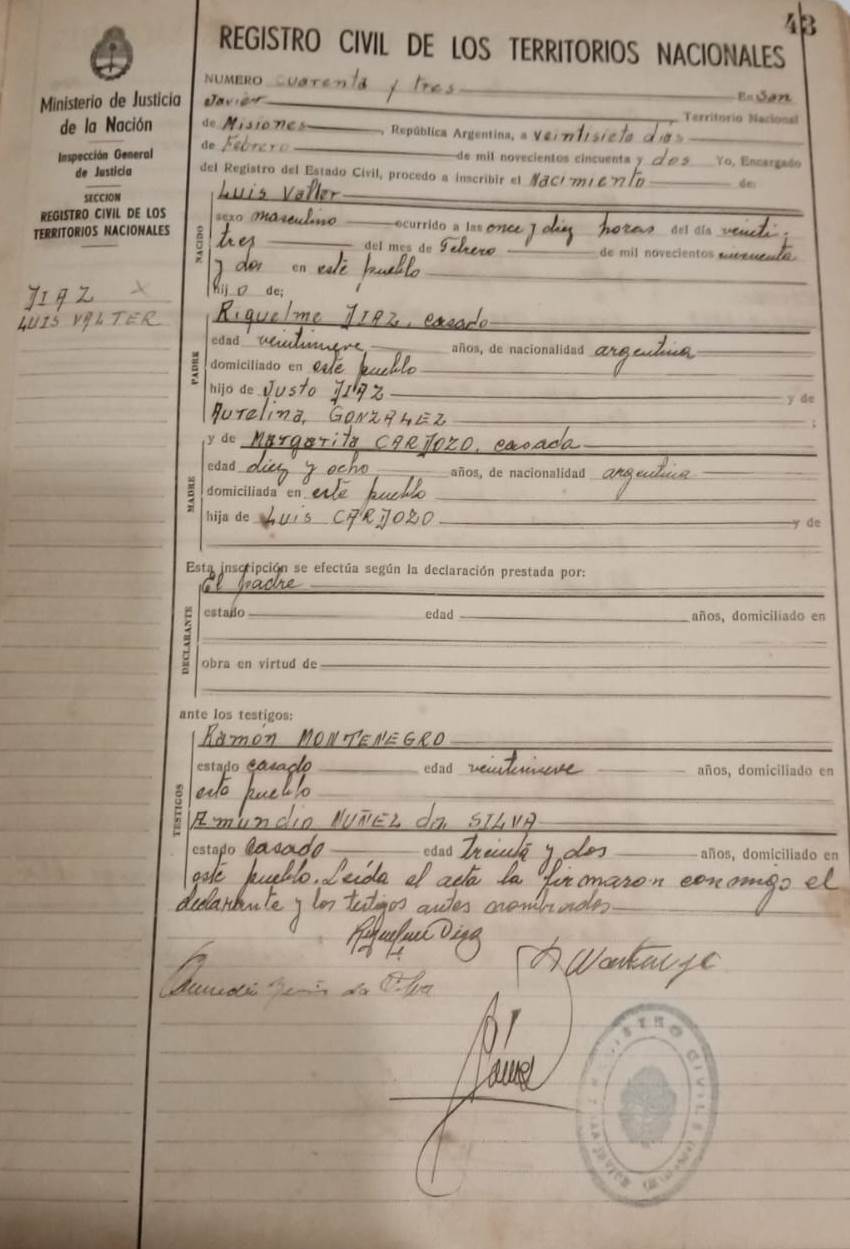 43
REGISTRO CIVIL DE LOS TERRITORIOS NACIONALES
Ministerio de Justicia
de la Nación
Inspección General
de Justicia
SECCION
REGISTRO CIVIL DE LOS
TERRITORIOS NACIONALES
DIAZ X
LUIS VALTER
NUMERO cuarenta y tres En San
Javier Territorio Nacional
de Misiones, República Argentina, a veintisiete dias
de Febrero de mil novecientos cincuenta y dos Yo, Encargado
del Registro del Estado Civil, procedo a inscribir el Nacimiento de:
NACIDO
Luis Valter
sexo masculino ocurrido a las once y diez horas del día veinti
tres del mes de Febrero de mil novecientos cincuenta
y dos en este pueblo
hijo de;
PADRE
Riquelme DIAZ, casado
edad veintinueve años, de nacionalidad argentina
domiciliado en este pueblo
hijo de Justo DIAZ y de
Aurelina, GONZALEZ ;
MADRE
y de Margarita CARDOZO, casada
edad diez y ocho años, de nacionalidad argentina
domiciliada en este pueblo
hija de Luis CARDOZO y de
Esta inscripción se efectúa según la declaración prestada por:
DECLARANTE
El padre
estado edad años, domiciliado en
obra en virtud de
ante los testigos:
TESTIGOS
Ramón MONTENEGRO
estado casado edad veintinueve años, domiciliado en
este pueblo
Amundio NUÑEZ da SILVA
estado casado edad treinta y dos años, domiciliado en
este pueblo. Leída el acta la firmaron conmigo el
declarante y los testigos antes nombrados
Riquelme Diaz
da Silva
REGISTRO CIVIL
SAN JAVIER (Misiones)